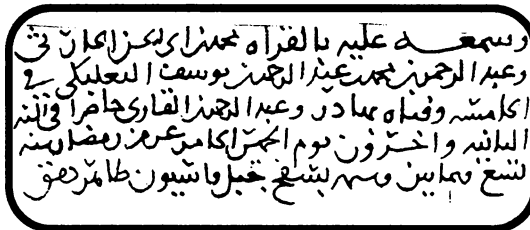 وسمعه عليه بالقراه محمد بن أبي بكر
وعبد الرحمن بن محمد بن عبد الرحمن بن يوسف البعلبكي في
الخامسه وفتاه بهادر وعبد الرحمن القاري حاضرا في
الثانيه واخرون يوم الخميس الخامس عشر من رمضان سنه
تسع وثمانين وستمائة بسفح جبل قاسيون ظاهر دمشق